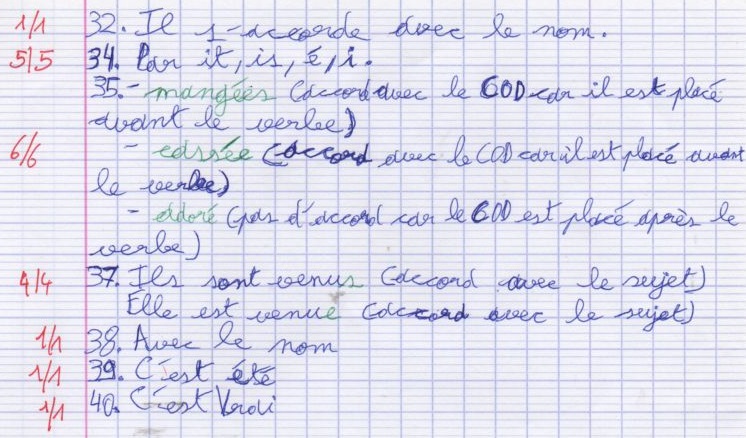 1/1 32. Il s'accorde avec le nom.
5/5 34. Par it, is, é, i.
35. - mangées (accord avec le COD car il est placé
avant le verbe)
6/6 - cassée (accord avec le COD car il est placé avant
le verbe)
- adoré (pas d'accord car le COD est placé après le
verbe)
4/4 37. Ils sont venus (accord avec le sujet)
Elle est venue (accord avec le sujet)
1/1 38. Avec le nom
1/1 39. C'est été
1/1 40. C'est Vrai